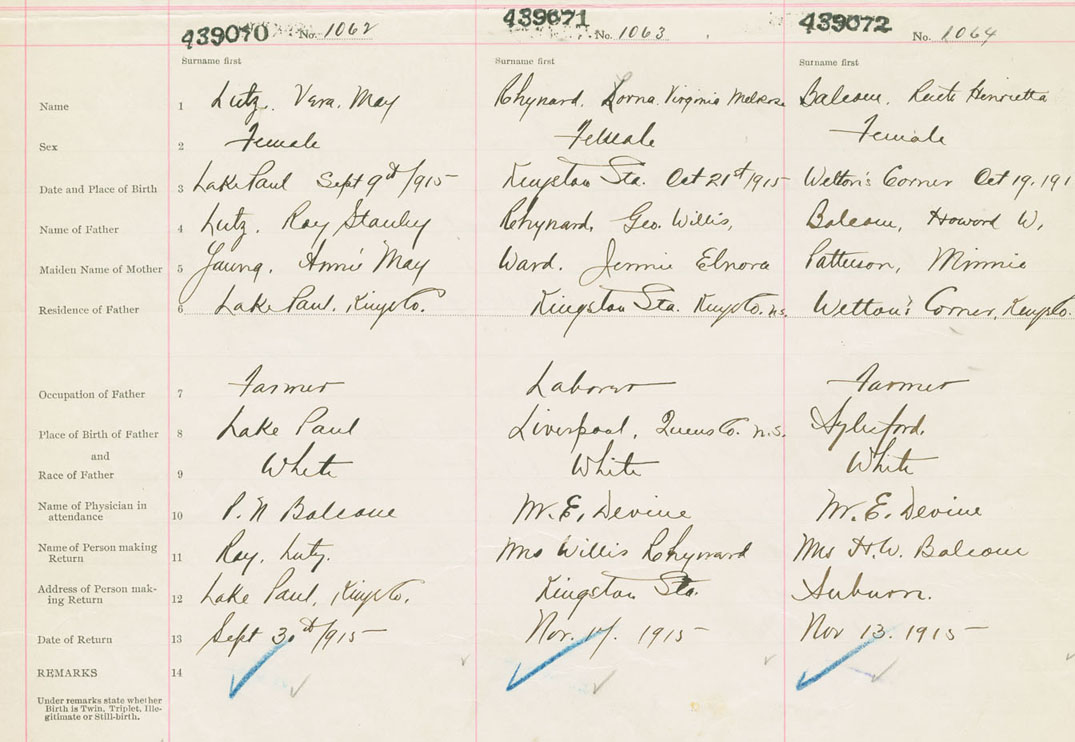 439070 No. 1062 439071 No. 1063 439072 No. 1064
Surname first Surname first Surname first
Name 1 Lutz, Vera, May Rhynard, Lorna, Virginia Melrose Balcom, Henrietta
Sex 2 Female Female Female
Date and Place of Birth 3 Lake Paul Sept 9th/1915 Kingston Sta. Oct 21st/1915 Welton's Corner Oct 19, 191
Name of Father 4 Lutz, Ray Stanley Rhynard, Geo. Willis, Balcom, Howard W.
Maiden Name of Mother 5 Young, Annie May Ward. Jennie Elnora Patterson, Minnie
Residence of Father 6 Lake Paul, Kings Co. Kingston Sta. Kings Co. N.S. Welton's Corner, Kings Co.
Occupation of Father 7 Farmer Laborer Farmer
Place of Birth of Father 8 Lake Paul Liverpool, Queens Co. N.S. Aylesford.
and
Race of Father 9 White White White
Name of Physician in
attendance 10 P. N Balcome W. E. Devine W. E. Devine
Name of Person making
Return 11 Ray, Lutz. Mrs Willis Rhynard Mrs H. W. Balcom
Address of Person mak-
ing Return 12 Lake Paul, Kings Co. Kingston Sta. Auburn.
Date of Return 13 Sept 30th/1915 Nov. 17. 1915 Nov 13. 1915
REMARKS 14
Under remarks state whether
Birth is Twin, Triplet, Ille-
gitimate or Still-birth.